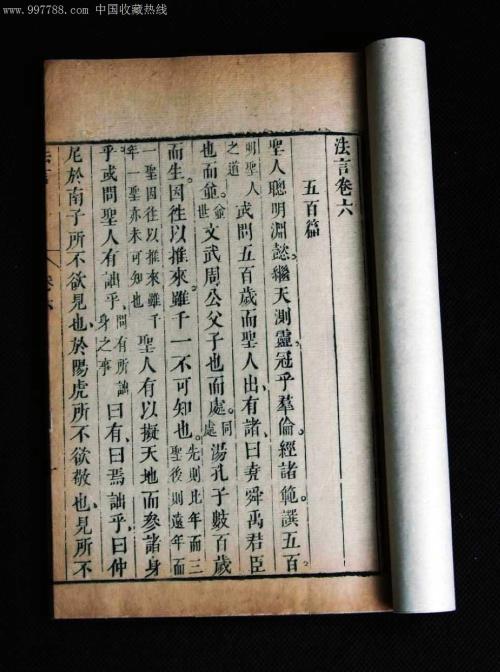 www.997788.com 中国收藏热线
法言卷六
五百篇
聖人聰明淵懿繼天測靈冠乎羣倫經諸範譔五百
明聖人之道或問五百歲而聖人出有諸曰堯舜禹君臣
也而竝竝世文武周公父子也而處同處湯孔子數百歲
而生因徃以推來雖千一不可知也先則比年而三聖後則遠年而
一聖因徃以推來雖千年一聖亦未可知也聖人有以擬天地而參諸身
乎或問聖人有詘乎問有所詘身之事曰有曰焉詘乎曰仲
尼於南子所不欲見也於陽虎所不欲敬也見所不